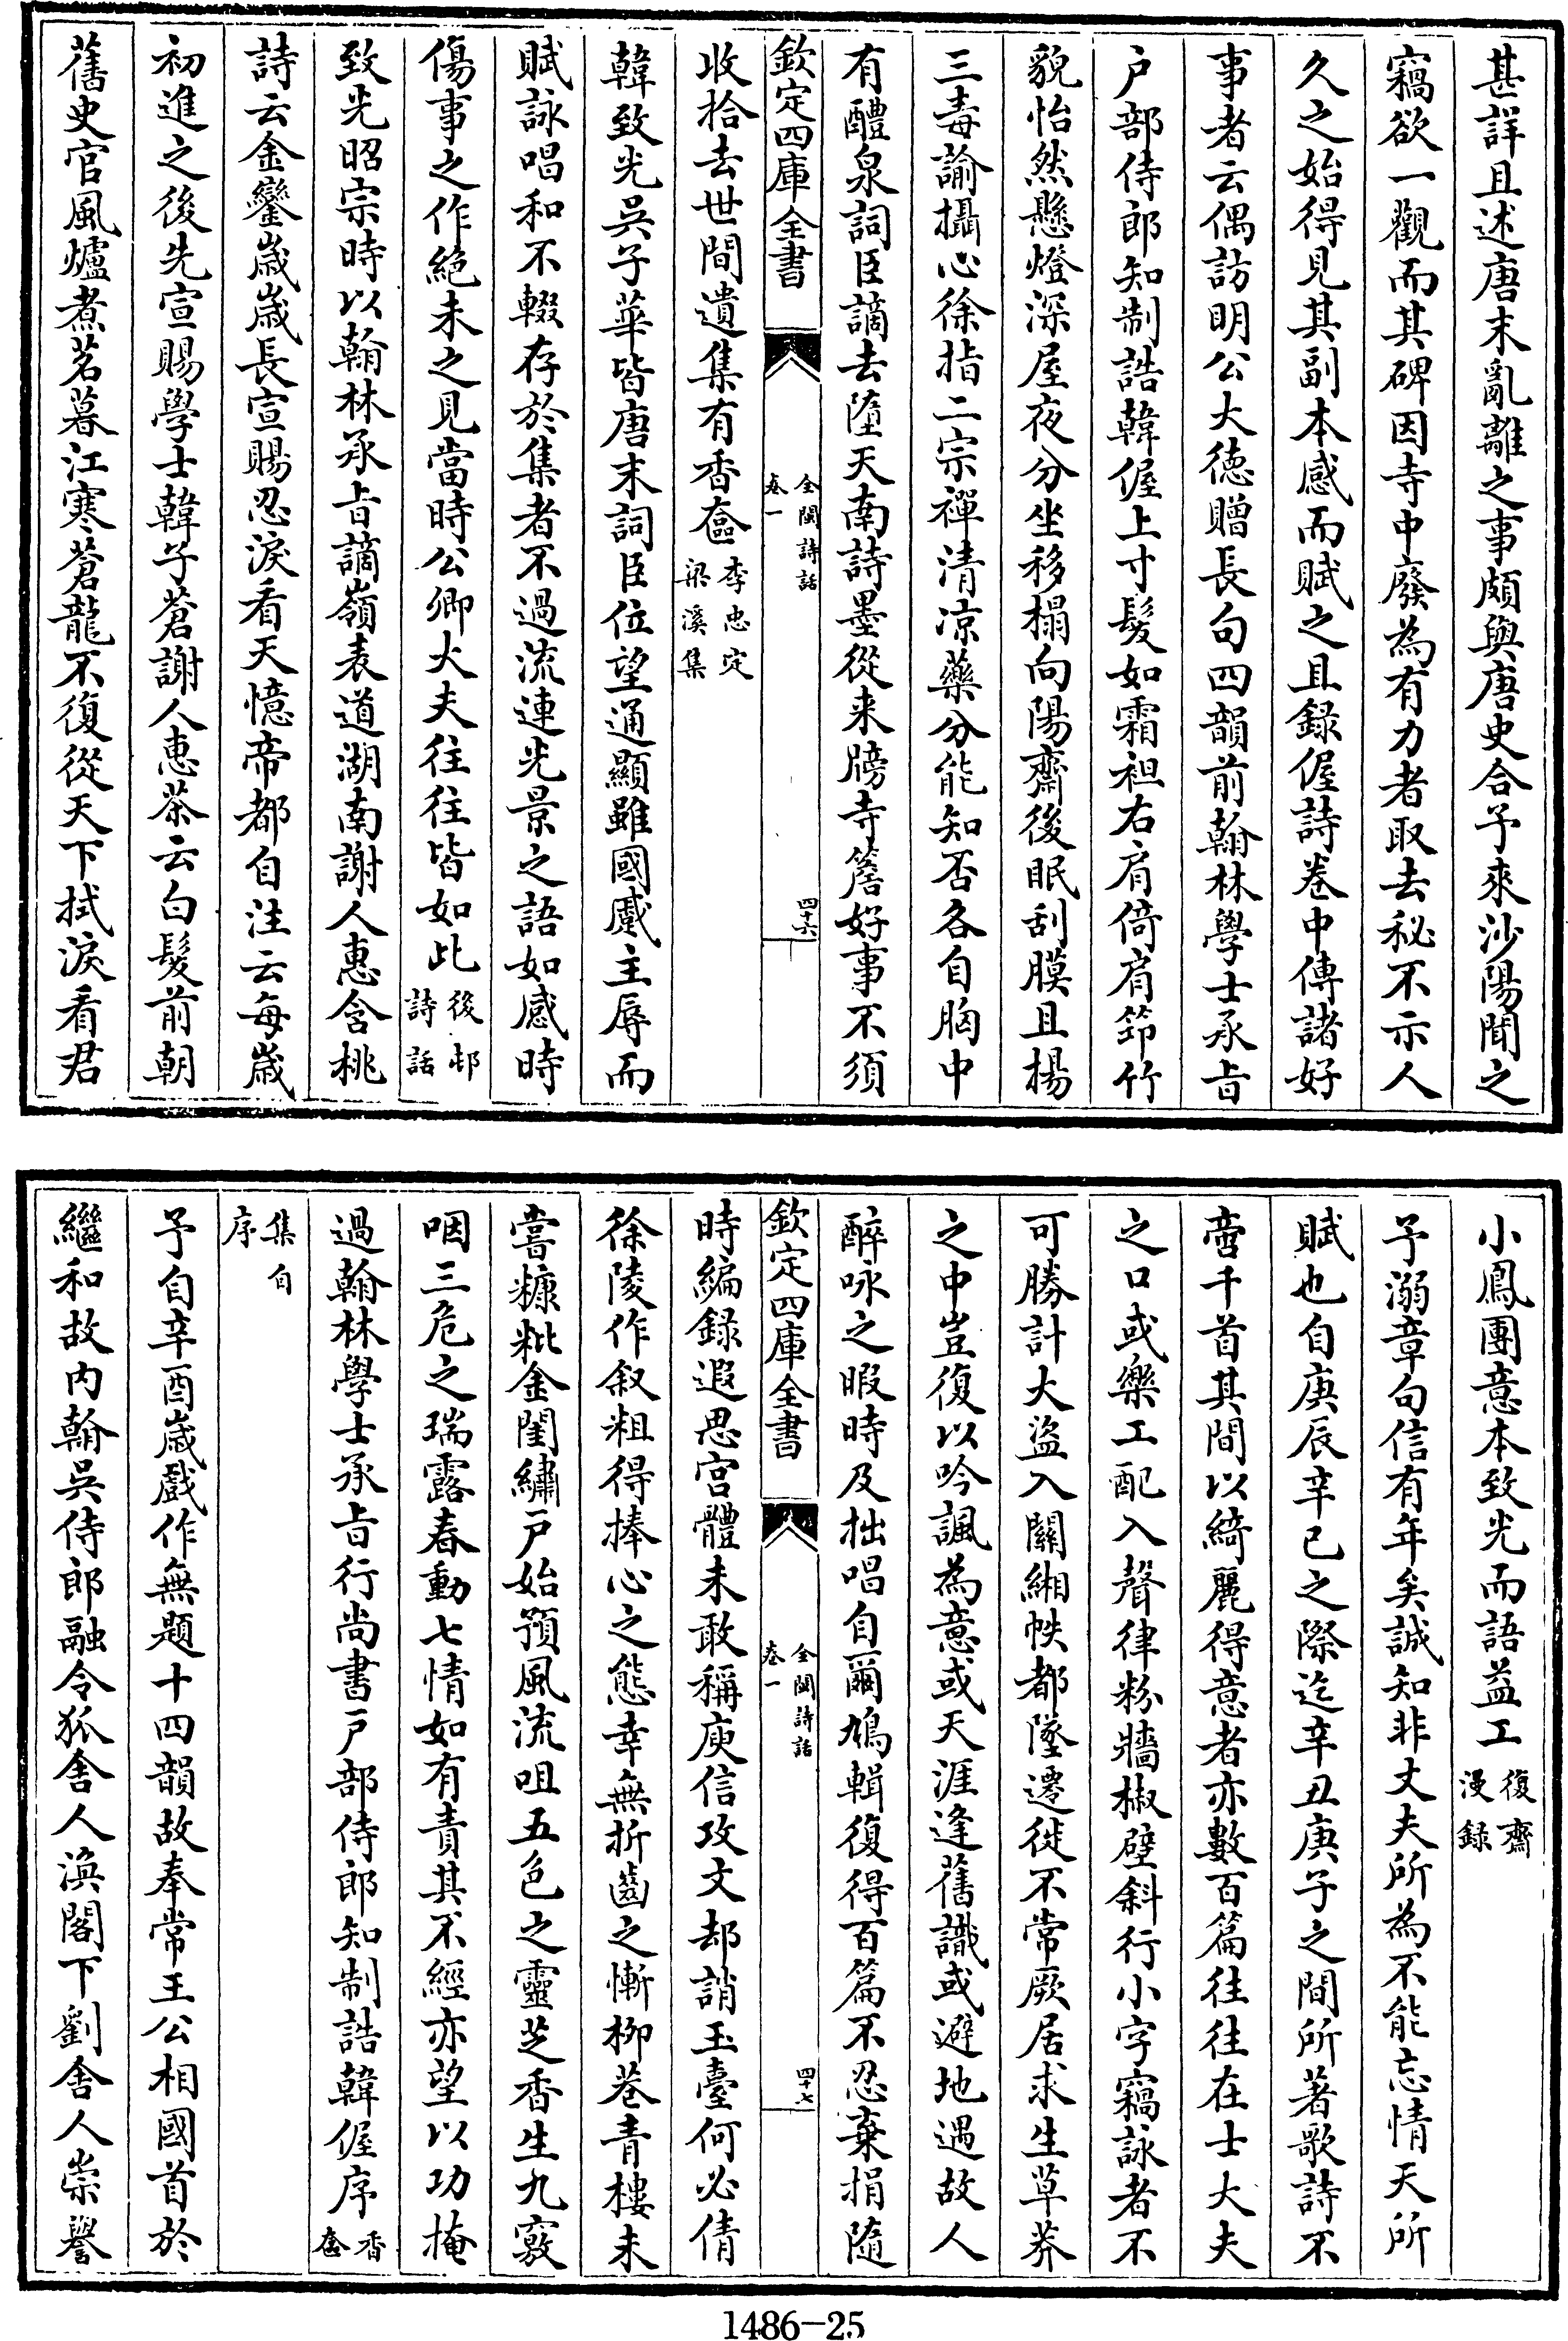 甚詳且述唐末亂離之事頗與唐史合予來沙陽聞之
竊欲一觀而其碑因寺中廢為有力者取去秘不示人
久之始得見其副本感而賦之且録偓詩卷中傳諸好
事者云偶訪明公大徳贈長句四韻前翰林學士承㫖
户部侍郎知制誥韓偓上寸髮如霜袒右肩倚肩笻竹
貌怡然懸燈深屋夜分坐移榻向陽齋後眠刮膜且揚
三毒諭攝心徐指二宗禪清凉藥分能知否各自胸中
有醴泉詞臣謫去墮天南詩墨從来牓寺簷好事不須
欽定四庫全書
全閩詩話
卷一
四十六
收拾去世間遺集有香奩
李忠定
梁溪集
韓致光吳子華皆唐末詞臣位望通顯雖國蹙主辱而
賦詠唱和不輟存於集者不過流連光景之語如感時
傷事之作絶未之見當時公卿大夫往往皆如此
後邨
詩話
致光昭宗時以翰林承㫖謫嶺表道湖南謝人惠含桃
詩云金鑾歲歲長宣賜忍淚看天憶帝都自注云每歲
初進之後先宣賜學士韓子蒼謝人惠茶云白髮前朝
舊史官風爐煮茗暮江寒蒼龍不復從天下拭淚看君
小鳳團意本致光而語益工
復齋
漫録
予溺章句信有年矣誠知非丈夫所為不能忘情天所
賦也自庚辰辛已之際迄辛丑庚子之間所著歌詩不
啻千首其間以綺麗得意者亦數百篇往往在士大夫
之口或樂工配入聲律粉牆椒壁斜行小字竊詠者不
可勝計大盜入關緗帙都墜遷徙不常厥居求生草莽
之中豈復以吟諷為意或天涯逢舊識或避地遇故人
醉咏之暇時及拙唱自爾鳩輯復得百篇不忍棄捐隨
欽定四庫全書
全閩詩話
卷一
四十七
時編録遐思宫體未敢稱庾信攻文却誚玉臺何必倩
徐陵作叙粗得捧心之態幸無折齒之慚栁巷青樓未
嘗糠粃金閨繡戸始預風流咀五色之靈芝香生九竅
咽三危之瑞露春動七情如有責其不經亦望以功掩
過翰林學士承㫖行尚書戸部侍郎知制誥韓偓序
香奩
集自
序
予自辛酉歲戲作無題十四韻故奉常王公相國首於
繼和故内翰吳侍郎融令狐舍人渙閣下劉舍人崇譽
1486-25